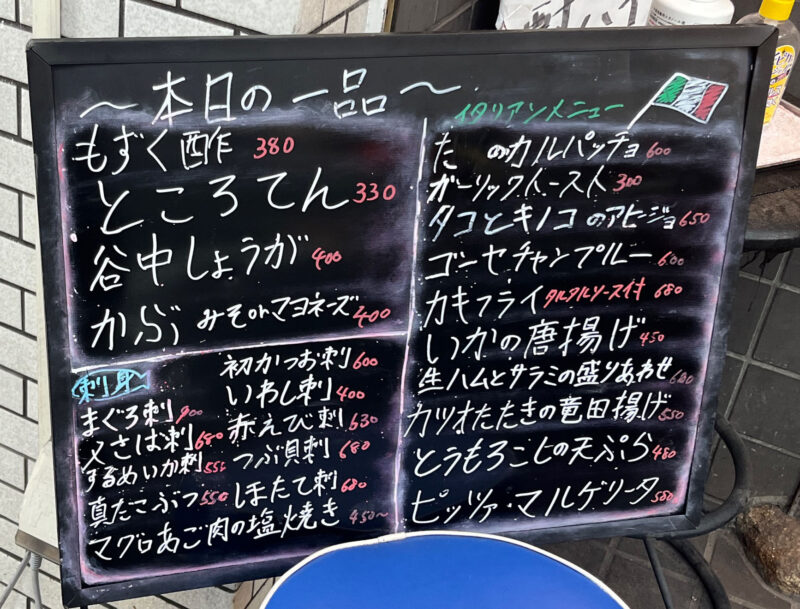 ～本日の一品～
もずく酢 380
ところてん 330
谷中しょうが 400
かぶ みそorマヨネーズ 400
刺身
まぐろ刺 900
〆さば刺 680
するめいか刺 555
真たこぶつ 550
初かつお刺 600
いわし刺 400
赤えび刺 630
つぶ貝刺 680
ほたて刺 680
マグロあご肉の塩焼き 450～
イタリアンメニュー
た のカルパッチョ 600
ガーリックトースト 300
タコとキノコのアヒージョ 650
ゴーヤチャンプルー 600
カキフライ タルタルソース付 680
いかの唐揚げ 450
生ハムとサラミの盛りあわせ
カツオたたきの竜田揚げ 550
とうもろこしの天ぷら 480
ピッツァ・マルゲリータ 500